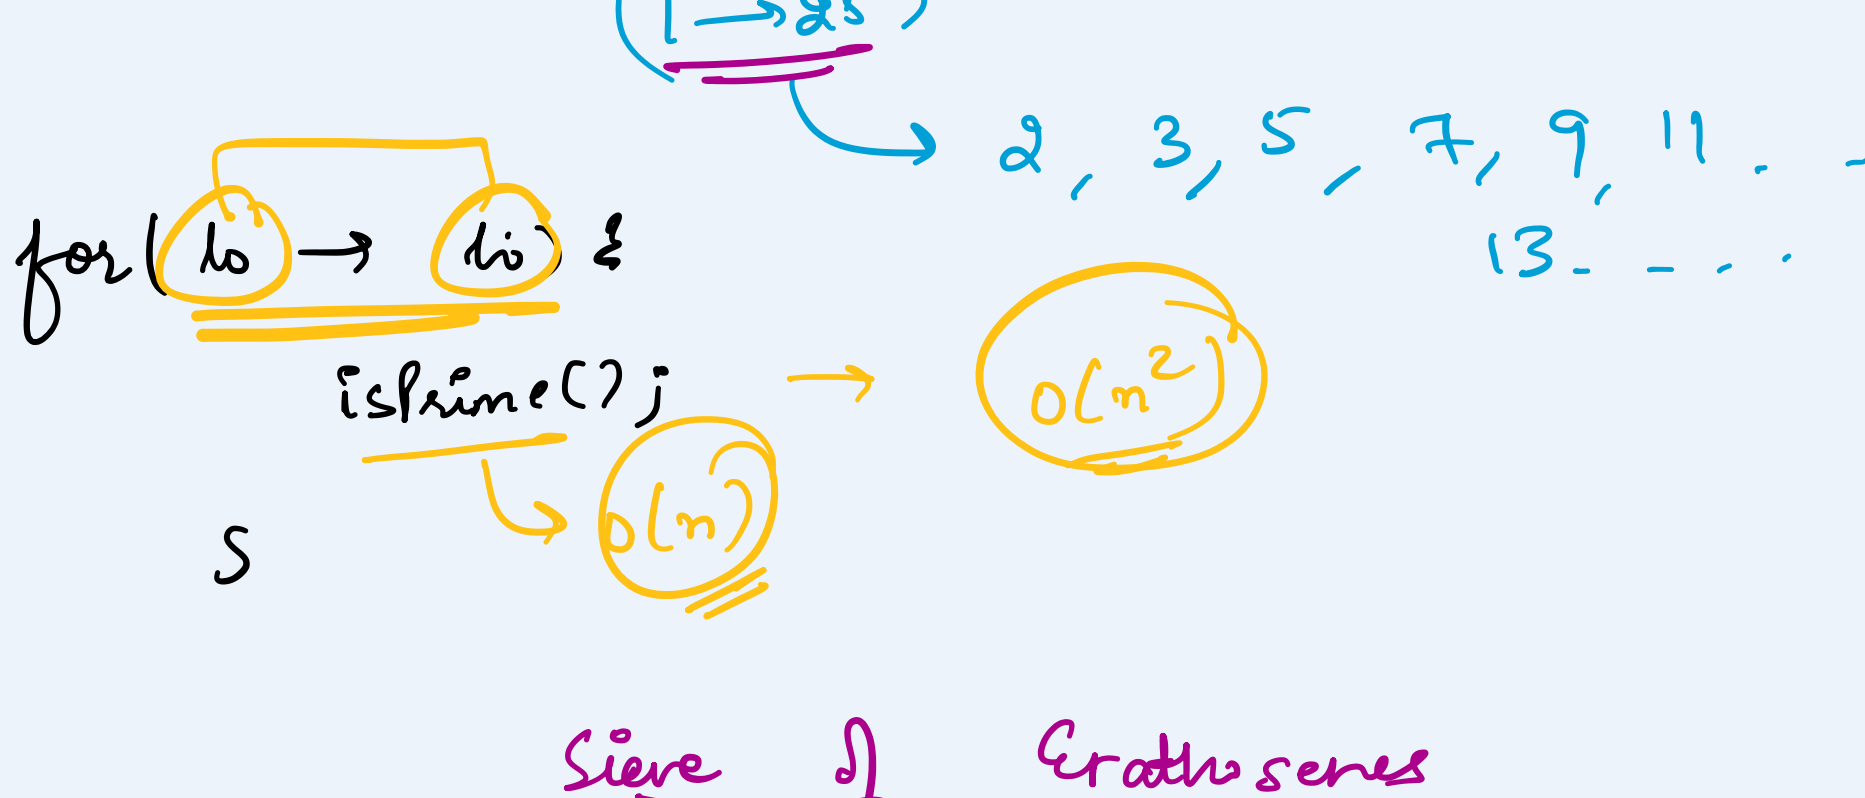 (1 → 25)
2, 3, 5, 7, 9, 11 . -
13 - - - .
for(lo → hi) {
isPrime(); → O(n²)
O(n)
}
Sieve of Erathosenes